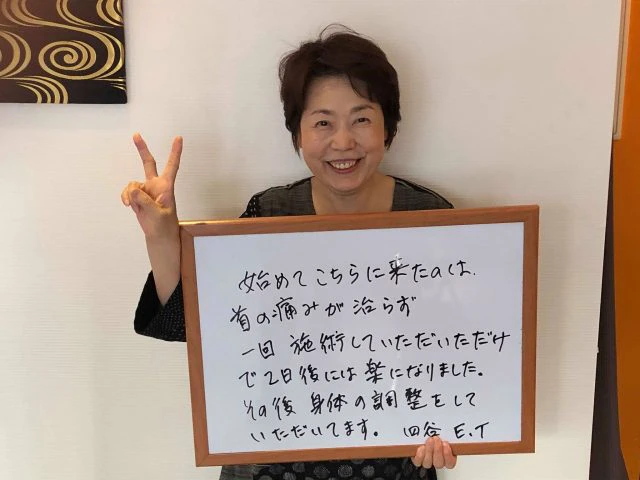 始めてこちらに来たのは、
首の痛みが治らず
一回施術していただいただけ
で2日後には楽になりました。
その後身体の調整をして
いただいてます。 四谷 E.T